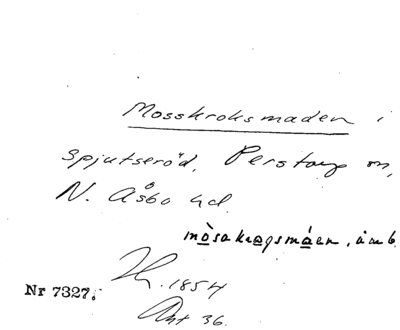 Mosskroksmaden i
Spjutseröd, Perstorp sn,
N. Åsbo hd.
mòsakrogsmáen, åmb.
1854
Nr 7327.
Akt 36.